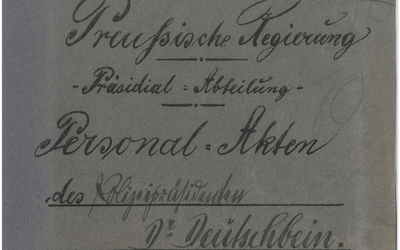 Preußische Regierung
- Präsidial = Abteilung -
Personal = Akten
des Polizeipräsidenten
Dr. Deutschbein.